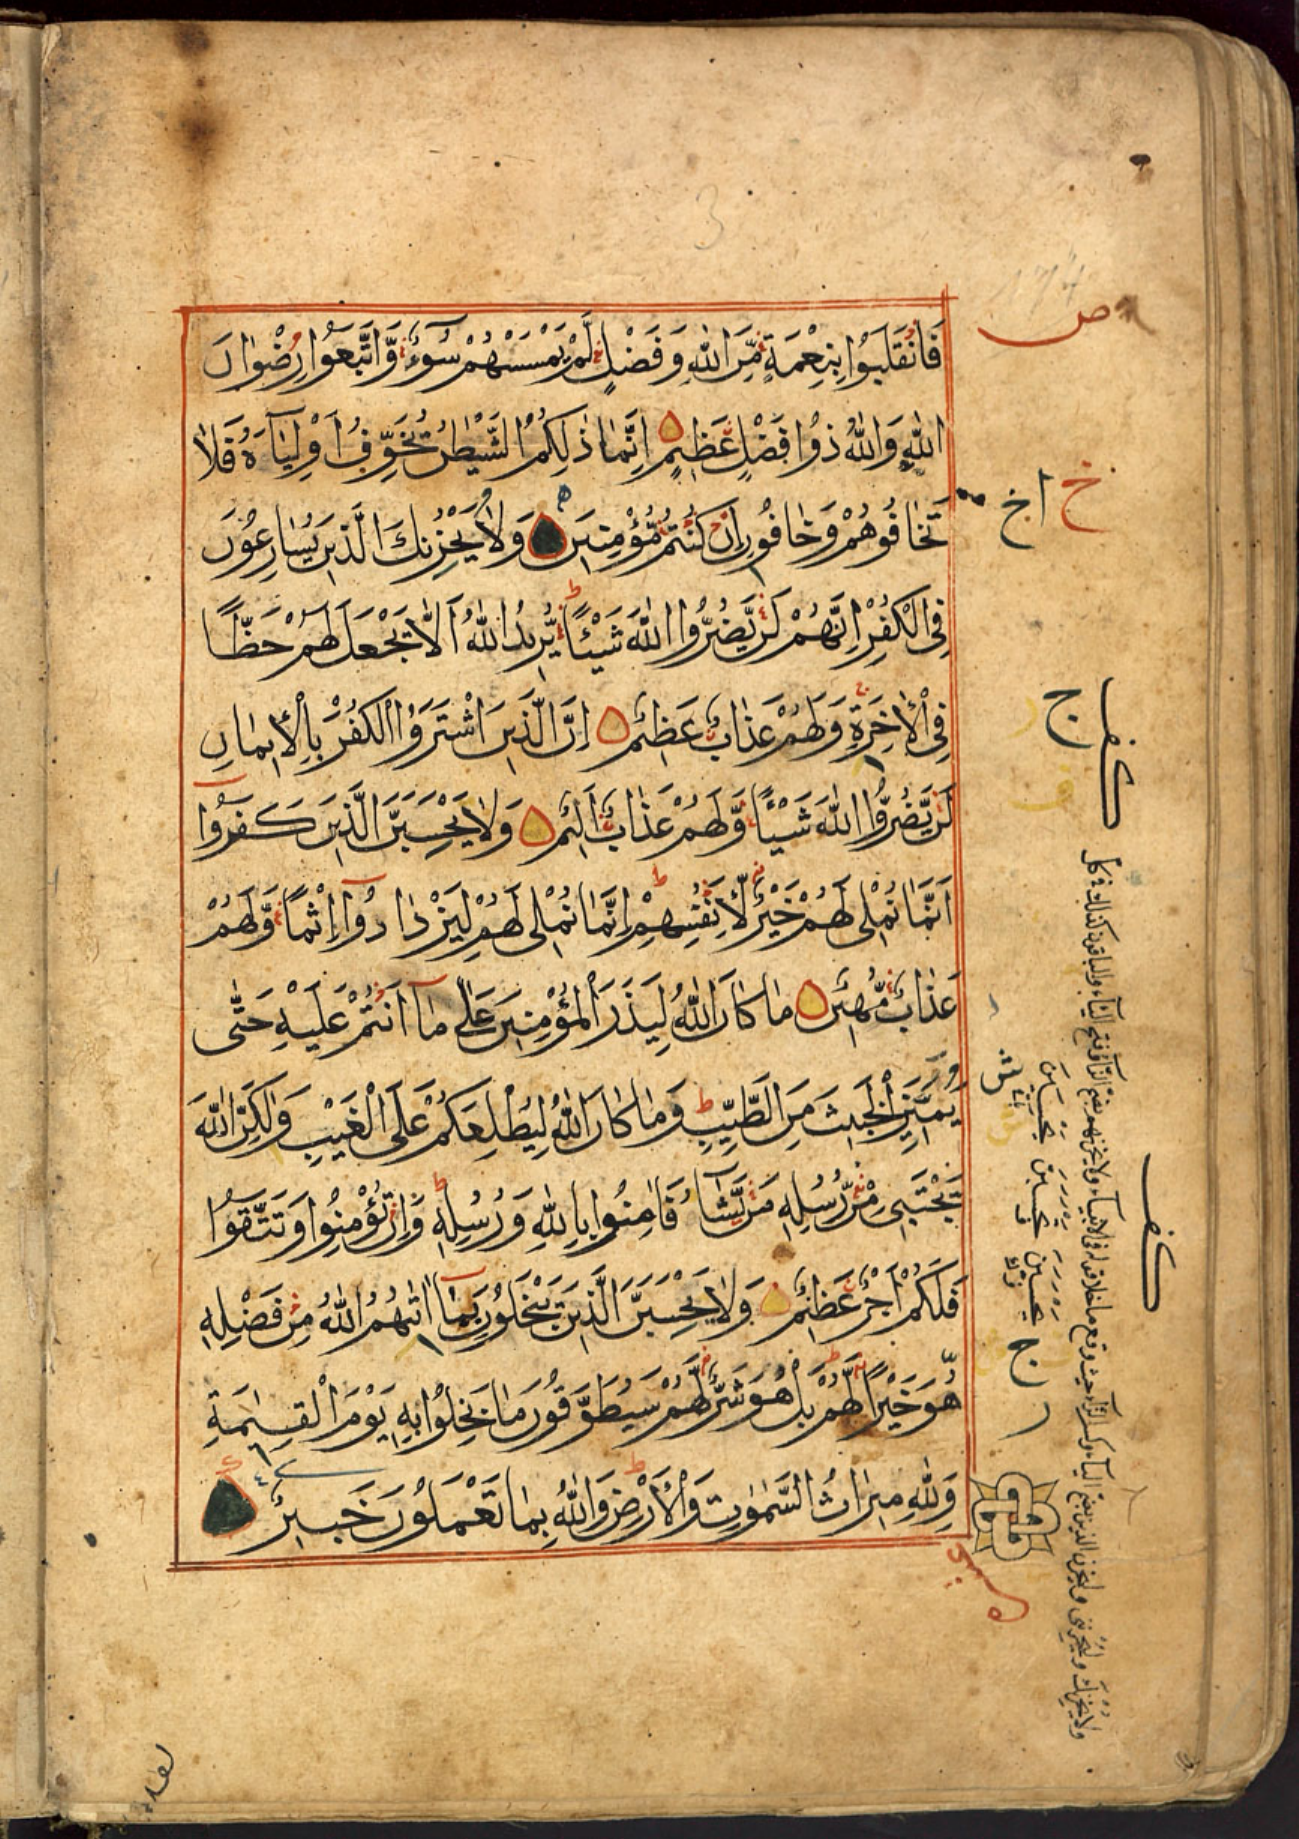 فَانْقَلَبُوا بِنِعْمَةٍ مِّنَ اللّٰهِ وَفَضْلٍ لَّمْ يَمْسَسْهُمْ سُوٓءٌ وَّاتَّبَعُوا رِضْوَانَ
اللّٰهِ وَاللّٰهُ ذُوا فَضْلٍ عَظِيمٍ اِنَّمَا ذٰلِكُمُ الشَّيْطٰنُ يُخَوِّفُ اَوْلِيَآءَهُ فَلَا
تَخَافُوهُمْ وَخَافُونِ اِنْ كُنْتُمْ مُّؤْمِنِينَ وَلَا يَحْزُنْكَ الَّذِينَ يُسَارِعُونَ
فِى الْكُفْرِ اِنَّهُمْ لَنْ يَّضُرُّوا اللّٰهَ شَيْئًا يُّرِيدُ اللّٰهُ اَلَّا يَجْعَلَ لَهُمْ حَظًّا
فِى الْاٰخِرَةِ وَلَهُمْ عَذَابٌ عَظِيمٌ اِنَّ الَّذِينَ اشْتَرَوُا الْكُفْرَ بِالْاِيمَانِ
لَنْ يَّضُرُّوا اللّٰهَ شَيْئًا وَّلَهُمْ عَذَابٌ اَلِيمٌ وَلَا يَحْسَبَنَّ الَّذِينَ كَفَرُوٓا
اَنَّمَا نُمْلِى لَهُمْ خَيْرٌ لِّاَنْفُسِهِمْ اِنَّمَا نُمْلِى لَهُمْ لِيَزْدَادُوٓا اِثْمًا وَّلَهُمْ
عَذَابٌ مُّهِينٌ مَا كَانَ اللّٰهُ لِيَذَرَ الْمُؤْمِنِينَ عَلٰى مَآ اَنْتُمْ عَلَيْهِ حَتّٰى
يَمِيزَ الْخَبِيثَ مِنَ الطَّيِّبِ وَمَا كَانَ اللّٰهُ لِيُطْلِعَكُمْ عَلَى الْغَيْبِ وَلٰكِنَّ اللّٰهَ
يَجْتَبِى مِنْ رُّسُلِهِ مَنْ يَّشَآءُ فَاٰمِنُوا بِاللّٰهِ وَرُسُلِهِ وَاِنْ تُؤْمِنُوا وَتَتَّقُوا
فَلَكُمْ اَجْرٌ عَظِيمٌ وَلَا يَحْسَبَنَّ الَّذِينَ يَبْخَلُونَ بِمَآ اٰتٰيهُمُ اللّٰهُ مِنْ فَضْلِهِ
هُوَ خَيْرًا لَّهُمْ بَلْ هُوَ شَرٌّ لَّهُمْ سَيُطَوَّقُونَ مَا بَخِلُوا بِهِ يَوْمَ الْقِيٰمَةِ
وَلِلّٰهِ مِيرَاثُ السَّمٰوٰتِ وَالْاَرْضِ وَاللّٰهُ بِمَا تَعْمَلُونَ خَبِيرٌ
ص
خ
اخ
ج
ج
لقد